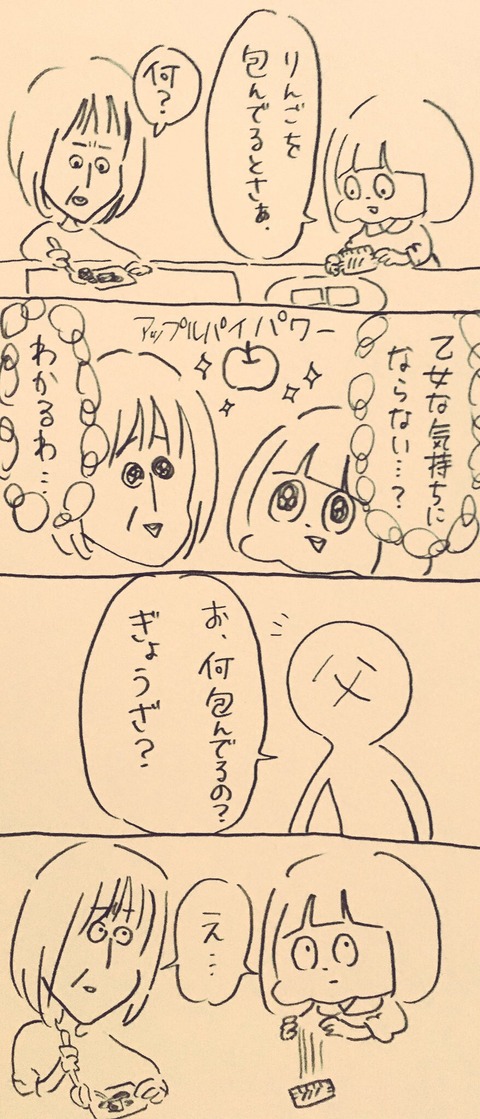 りんごを
包んでるとさぁ、
何?
アップルパイパワー
乙女な気持ちに
ならない…?
わかるわ…
父
お、何包んでるの?
ぎょうざ?
え…